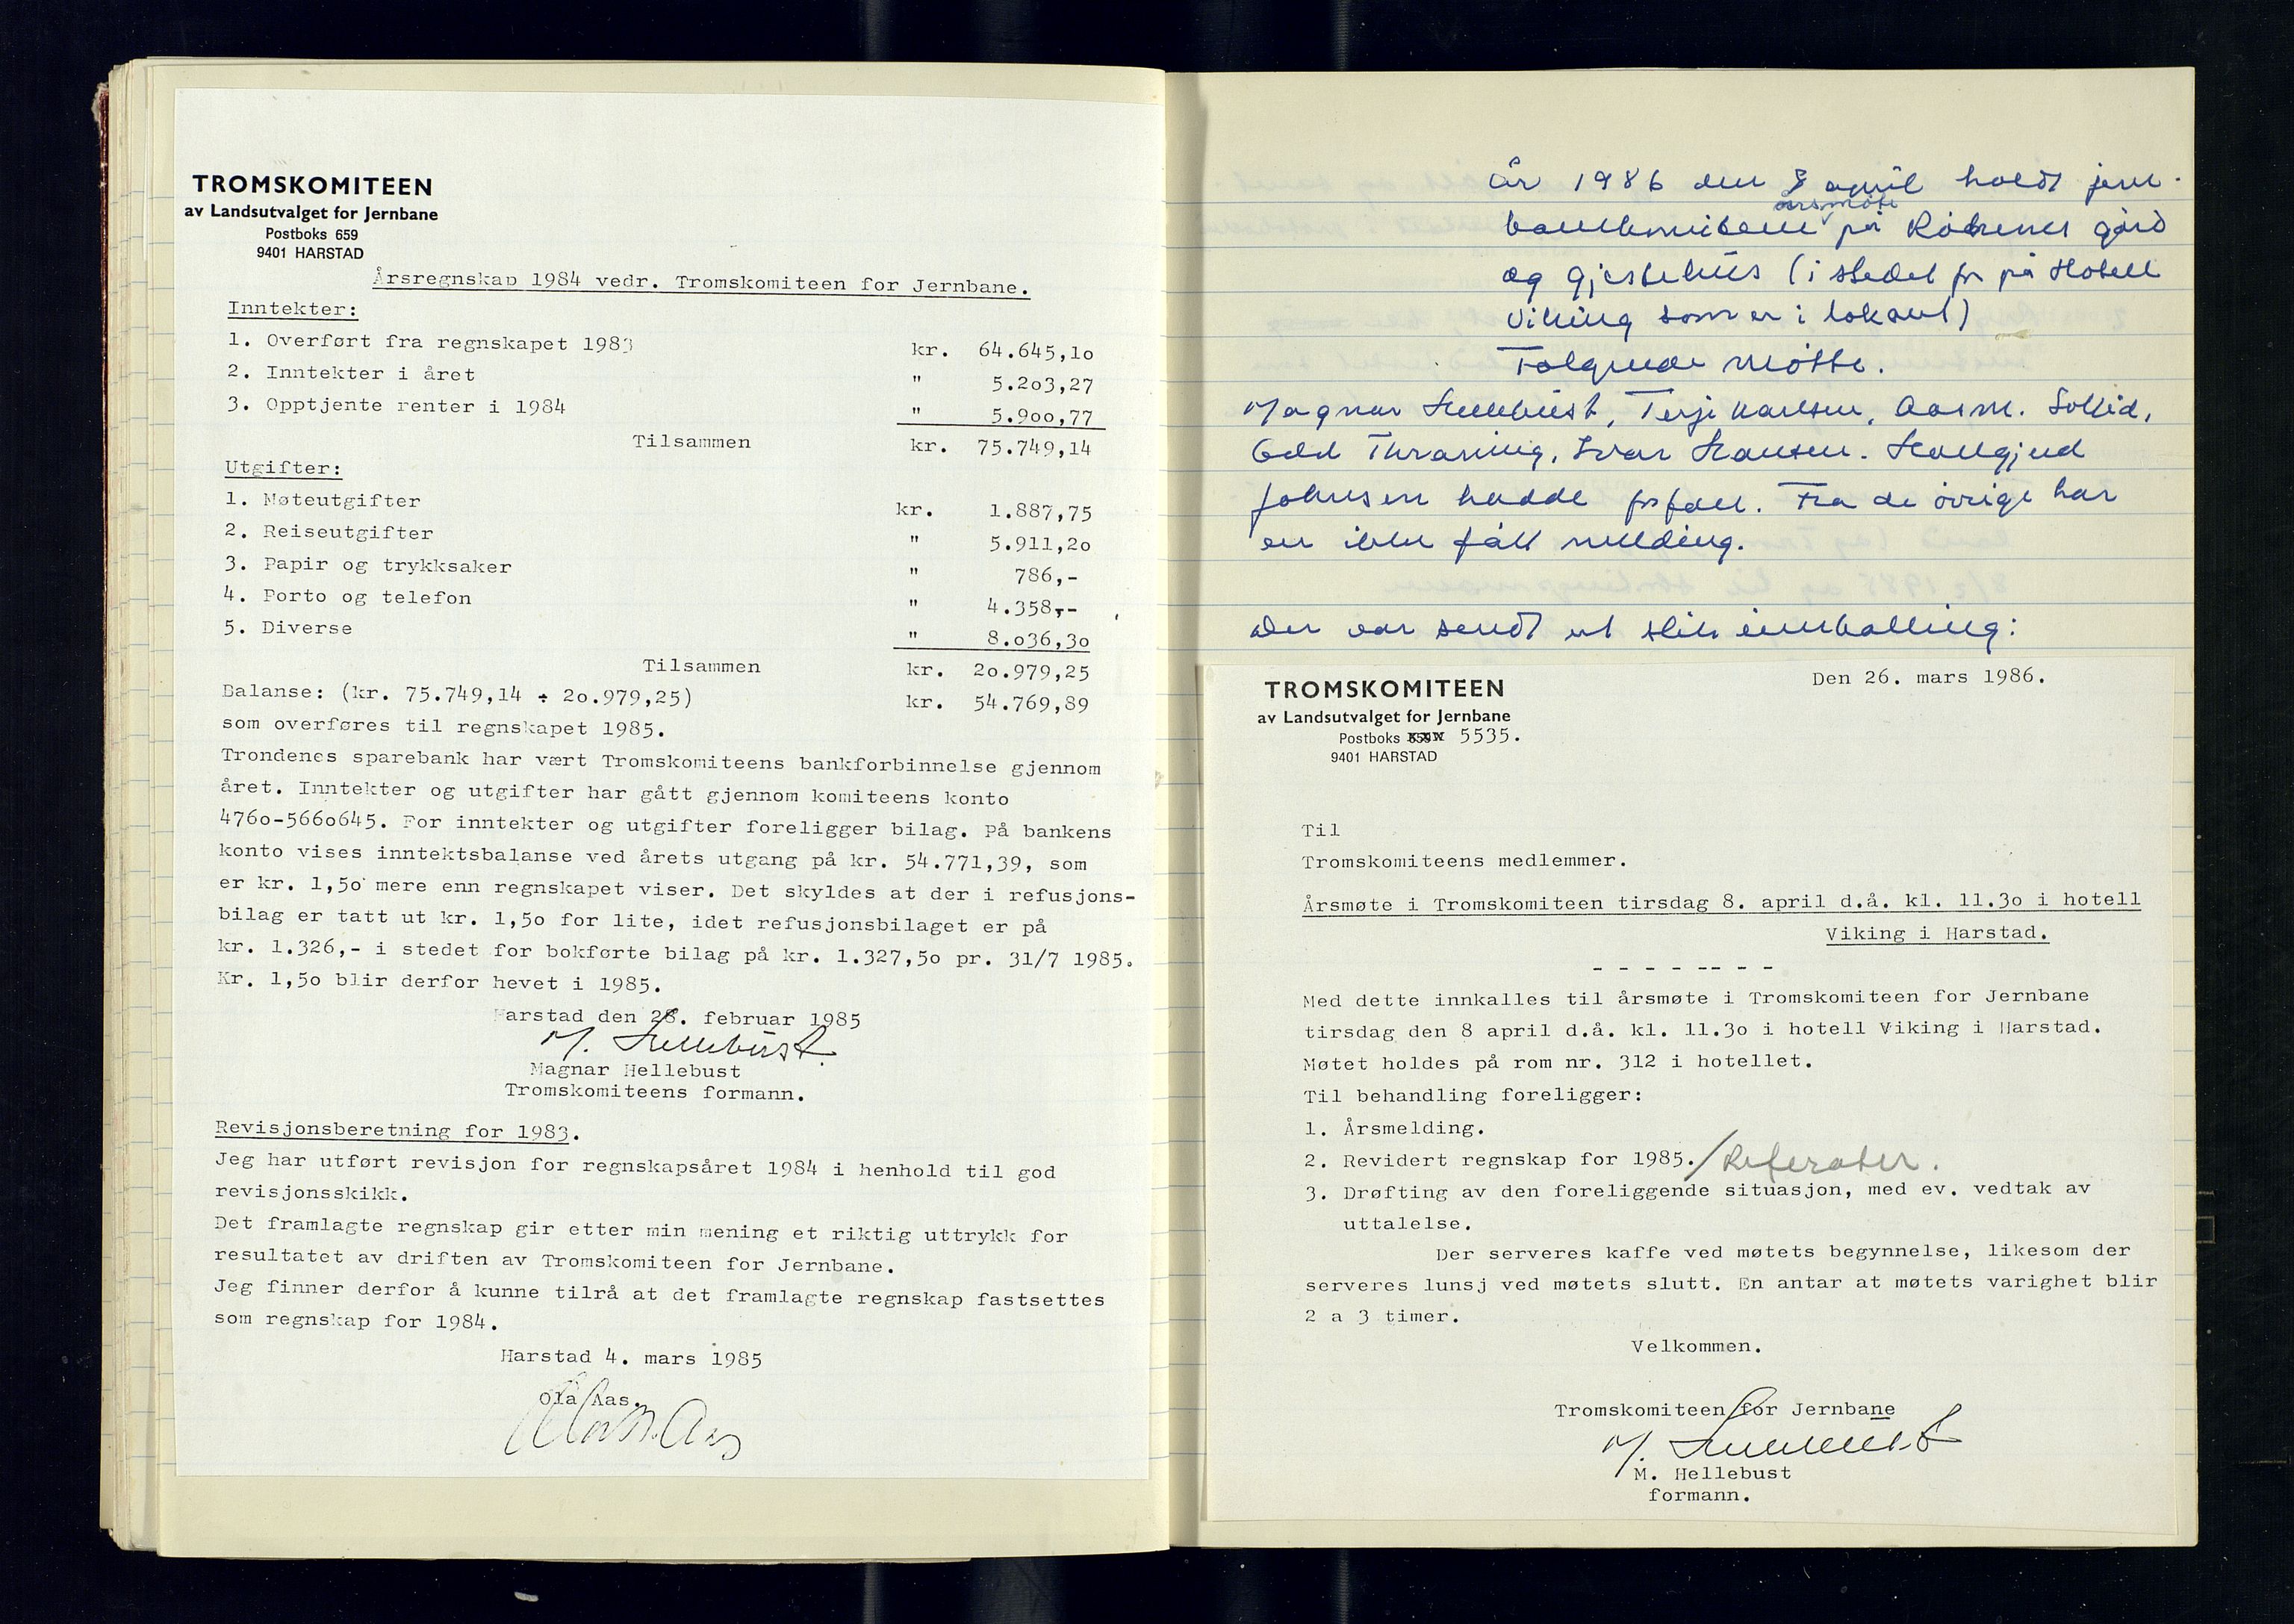 TROMSKOMITEEN
av Landsutvalget for Jernbane
Postboks 659
9401 HARSTAD
Årsregnskap 1984 vedr. Tromskomiteen for Jernbane.
Inntekter:
1. Overført fra regnskapet 1983 kr. 64.645,10
2. Inntekter i året " 5.203,27
3. Opptjente renter i 1984 " 5.900,77
Tilsammen kr. 75.749,14
Utgifter:
1. Møteutgifter kr. 1.887,75
2. Reiseutgifter " 5.911,20
3. Papir og trykksaker " 786,-
4. Porto og telefon " 4.358,-
5. Diverse " 8.036,30
Tilsammen kr. 20.979,25
Balanse: (kr. 75.749,14 ÷ 20.979,25) kr. 54.769,89
som overføres til regnskapet 1985.
Trondenes sparebank har vært Tromskomiteens bankforbinnelse gjennom
året. Inntekter og utgifter har gått gjennom komiteens konto
4760-5660645. For inntekter og utgifter foreligger bilag. På bankens
konto vises inntektsbalanse ved årets utgang på kr. 54.771,39, som
er kr. 1,50 mere enn regnskapet viser. Det skyldes at der i refusjons-
bilag er tatt ut kr. 1,50 for lite, idet refusjonsbilaget er på
kr. 1.326,- i stedet for bokførte bilag på kr. 1.327,50 pr. 31/7 1985.
Kr. 1,50 blir derfor hevet i 1985.
Harstad den 28. februar 1985
M. Hellebust
Magnar Hellebust
Tromskomiteens formann.
Revisjonsberetning for 1983.
Jeg har utført revisjon for regnskapsåret 1984 i henhold til god
revisjonsskikk.
Det framlagte regnskap gir etter min mening et riktig uttrykk for
resultatet av driften av Tromskomiteen for Jernbane.
Jeg finner derfor å kunne tilrå at det framlagte regnskap fastsettes
som regnskap for 1984.
Harstad 4. mars 1985
Ola Aas.
År 1986 den 8 april holdt jern-
banekomiteen årsmøte på Røkenes gård
og gjestehus (i stedet for på Hotell
Viking som er i lokaut)
Følgende møtte.
Magnar Hellebust, Terje Karlsen, Aasm. Sollid,
Odd Thraning, Ivar Hansen. Hallgjerd
Johnsen hadde forfall. Fra de øvrige har
en ikke fått melding.
Der var sendt ut slik innkalling:
Den 26. mars 1986.
TROMSKOMITEEN
av Landsutvalget for Jernbane
Postboks 659 5535.
9401 HARSTAD
Til
Tromskomiteens medlemmer.
Årsmøte i Tromskomiteen tirsdag 8. april d.å. kl. 11.30 i hotell
Viking i Harstad.
- - - - -- - -
Med dette innkalles til årsmøte i Tromskomiteen for Jernbane
tirsdag den 8 april d.å. kl. 11.30 i hotell Viking i Harstad.
Møtet holdes på rom nr. 312 i hotellet.
Til behandling foreligger:
1. Årsmelding.
2. Revidert regnskap for 1985./Referater.
3. Drøfting av den foreliggende situasjon, med ev. vedtak av
uttalelse.
Der serveres kaffe ved møtets begynnelse, likesom der
serveres lunsj ved møtets slutt. En antar at møtets varighet blir
2 a 3 timer.
Velkommen.
Tromskomiteen for Jernbane
M. Hellebust
M. Hellebust
formann.